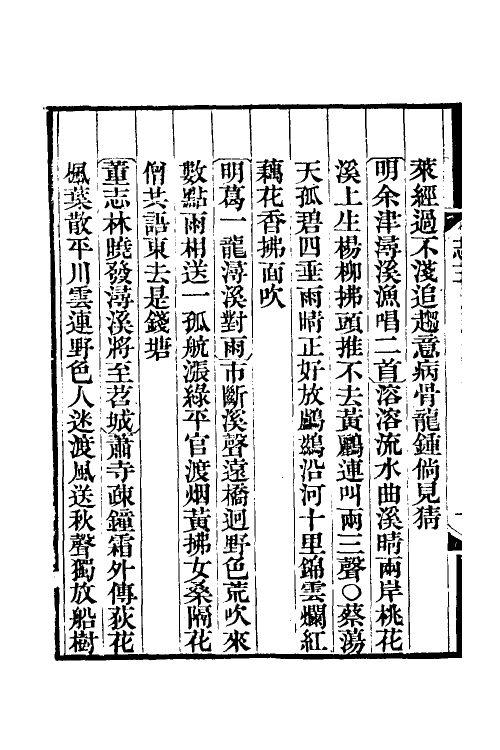 萊經過不淺追趨意病骨龍鍾倘見猜
明余津潯溪漁唱二首溶溶流水曲溪晴兩岸桃花
溪上生楊柳拂頭推不去黃鸝連叫兩三聲○蔡蕩
天孤碧四垂雨晴正好放鸕鷀沿河十里錦雲爛紅
藕花香拂面吹
明葛一龍潯溪對雨市斷溪聲遠橋迴野色荒吹來
數點雨相送一孤航漲綠平官渡烟黃拂女桑隔花
僧共語東去是錢塘
董志林曉發潯溪將至苕城蕭寺疎鐘霜外傳荻花
楓葉散平川雲連野色人迷渡風送秋聲獨放船樹